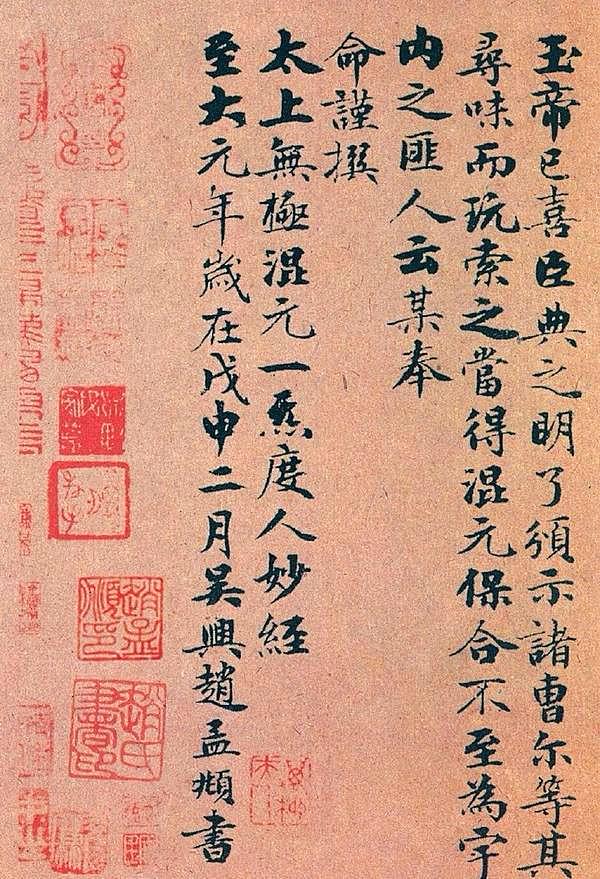 玉帝已喜臣典之明了須示諸曹尔等其
尋味而玩索之當得混元保合不至為字
內之匪人云某奉
命謹撰
太上無極混元一炁度人妙經
至大元年歲在戊申二月吳興趙孟頫書
趙孟頫印
趙氏書印